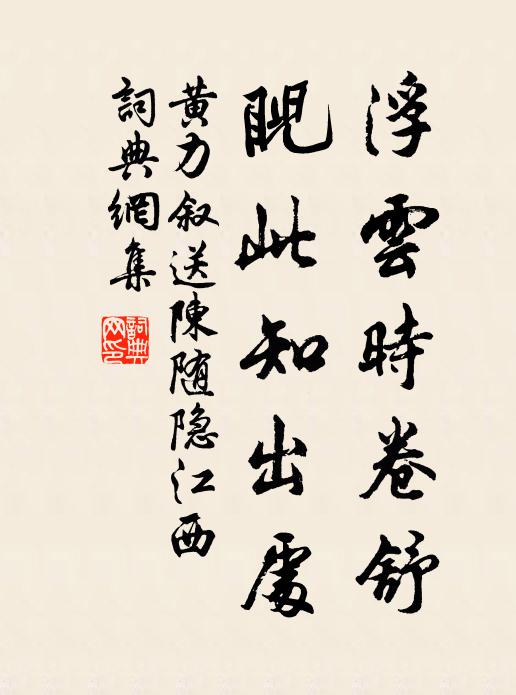 浮雲時卷舒
此知出處
黄力叙送陳随隐江西
詞典網集
詞典
网印